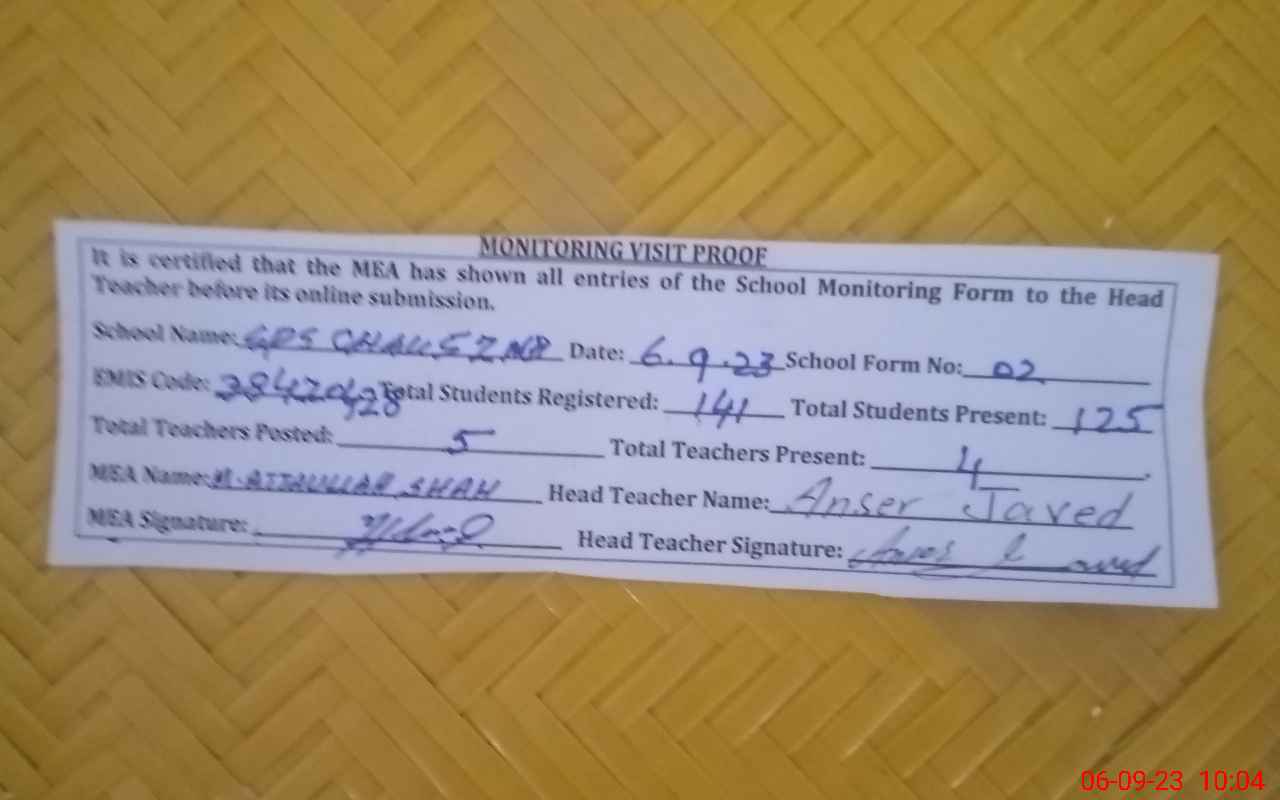 MONITORING VISIT PROOF
It is certified that the MEA has shown all entries of the School Monitoring Form to the Head
Teacher before its online submission.
School Name: GPS CHAK 5 ZNB Date: 6.9.23 School Form No: 02
EMIS Code: Total Students Registered: 141 Total Students Present: 125
Total Teachers Posted: 5 Total Teachers Present: 4.
MEA Name: M. ATTAULLAH SHAH Head Teacher Name: Anser Javed
MEA Signature: Head Teacher Signature:
06-09-23 10:04